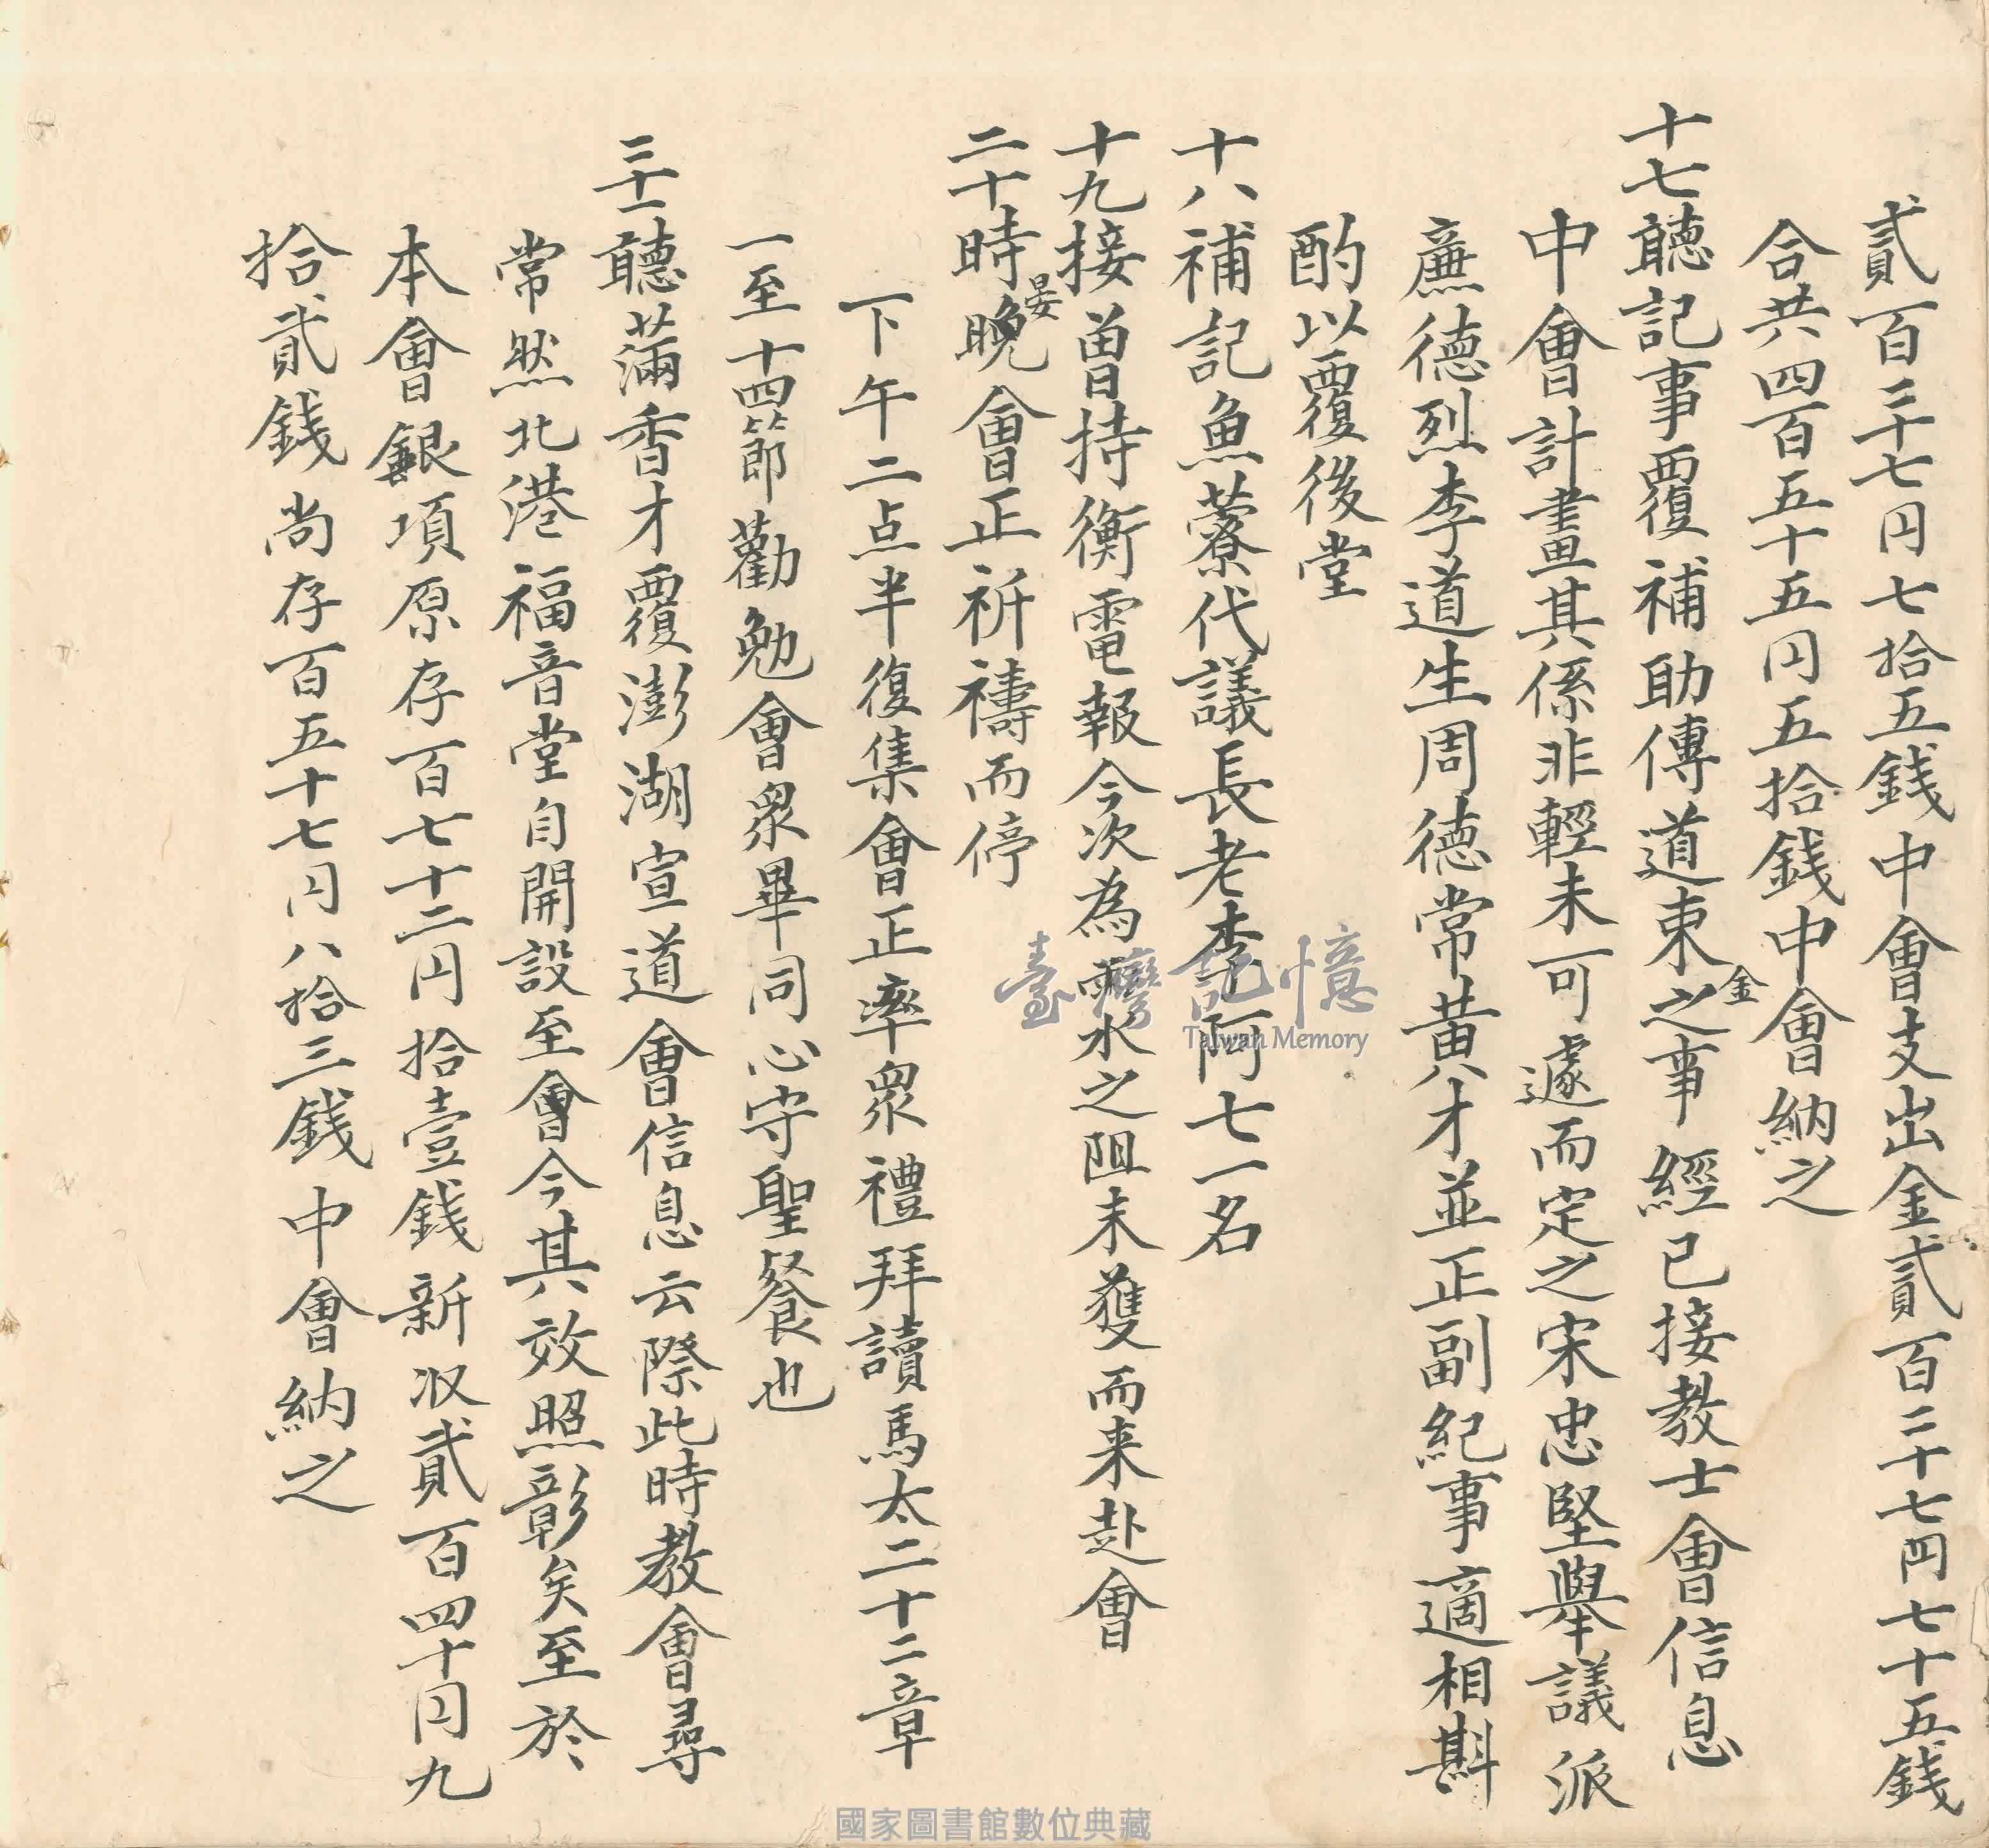 貳百三十七円七拾五銭中會支出金貳百三十七円七十五銭
合共四百五十五円五拾銭中會納之
十七聽記事覆補助傳道束金之事經已接教士會信息
中會計畫其係非輕未可遽而定之宋忠堅舉議派
廉德烈李道生周德常黃才並正副紀事適相斟
酌以覆後堂
十八補記魚藔代議長老李阿七一名
十九接曾持衡電報今次為雨水之阻未獲而来赴會
二十時晏晚會正祈禱而停
下午二点半復集會正率衆禮拜讀馬太二十二章
一至十四節勸勉會衆畢同心守聖餐也
二十一聽蒲香才覆澎湖宣道會信息云際此時教會尋
常然北港福音堂自開設至會今其效照彰矣至於
本會銀項原存百七十二円拾壹銭新收貳百四十円九
拾貳銭尚存百五十七円八拾三銭中會納之
臺灣記憶
Taiwan Memory
國家圖書館數位典藏